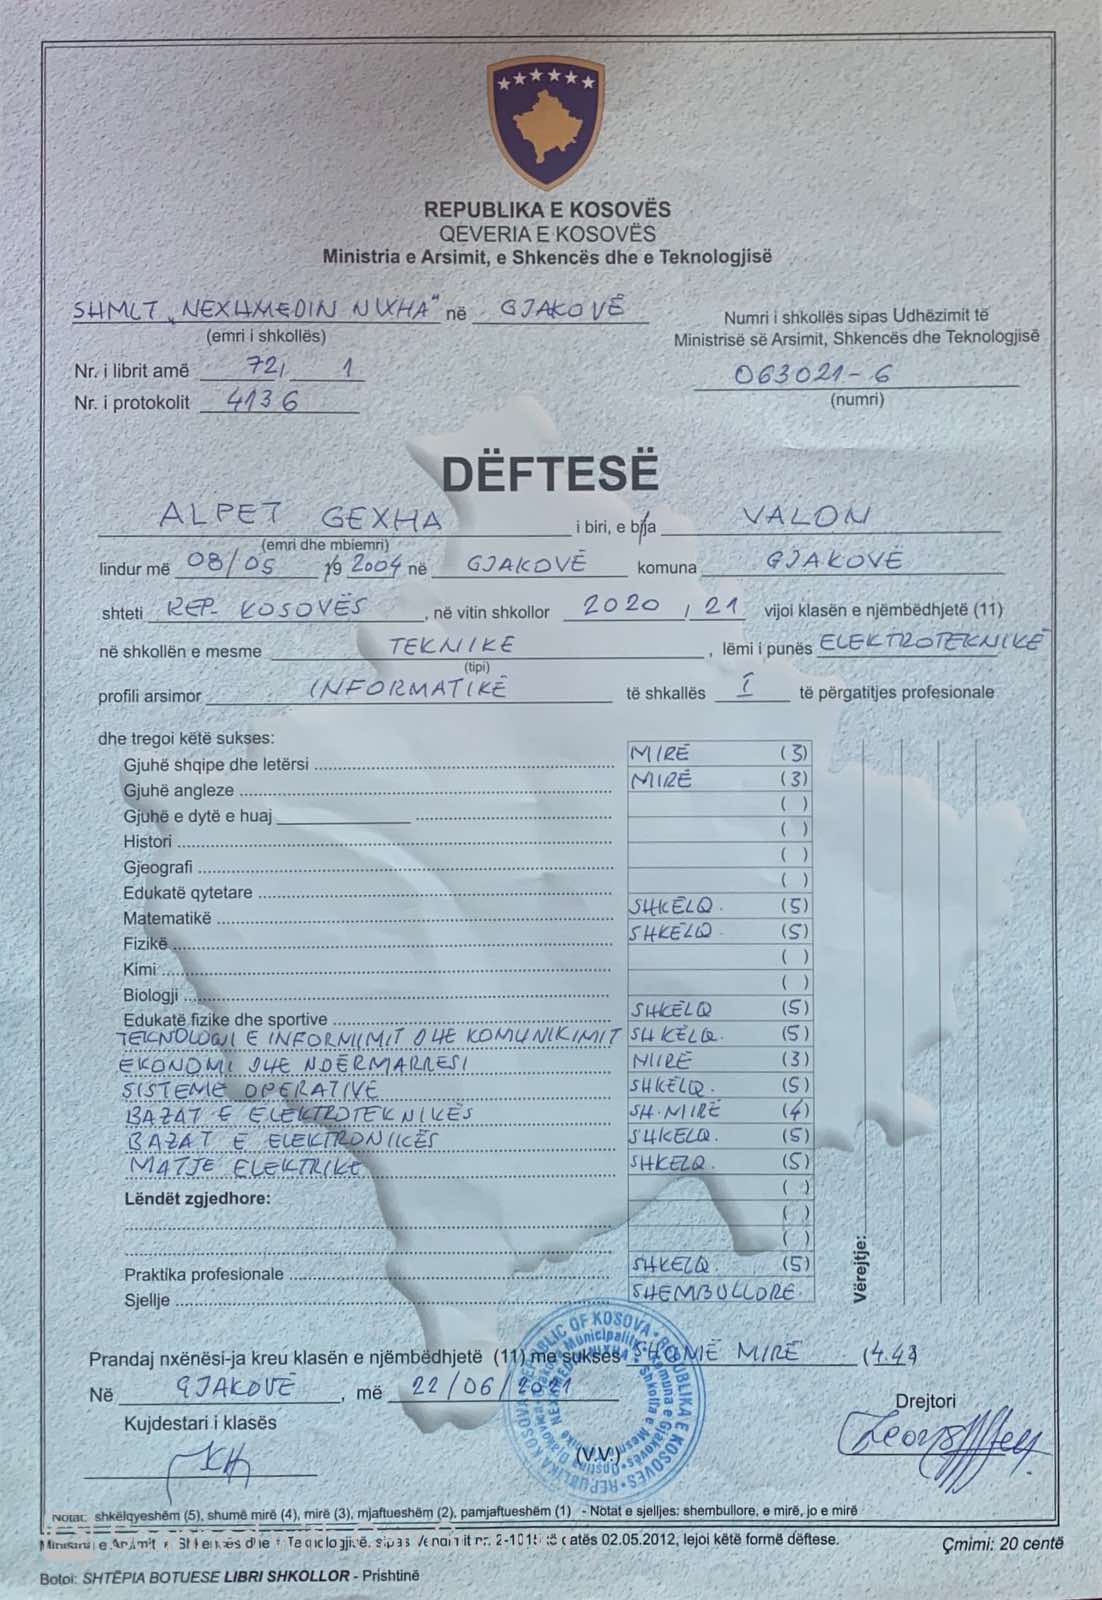 REPUBLIKA E KOSOVËS
QEVERIA E KOSOVËS
Ministria e Arsimit, e Shkencës dhe e Teknologjisë
SHMLT „NEXHMEDIN NIXHA" në GJAKOVË
(emri i shkollës)
Numri i shkollës sipas Udhëzimit të
Ministrisë së Arsimit, Shkencës dhe Teknologjisë
Nr. i librit amë 72, 1
063021-6
(numri)
Nr. i protokolit 4136
DËFTESË
ALPET GEXHA i biri, e bija VALON
(emri dhe mbiemri)
lindur më 08/05 19 2004 në GJAKOVË komuna GJAKOVË
shteti REP- KOSOVËS, në vitin shkollor 2020, 21 vijoi klasën e njëmbëdhjetë (11)
në shkollën e mesme TEKNIKE, lëmi i punës ELEKTROTEKNIKË
(tipi)
profili arsimor INFORMATIKË të shkallës I të përgatitjes profesionale
dhe tregoi këtë sukses:
Gjuhë shqipe dhe letërsi MIRË (3)
Gjuhë angleze MIRË (3)
Gjuhë e dytë e huaj ( )
Histori ( )
Gjeografi ( )
Edukatë qytetare ( )
Matematikë SHKËLQ. (5)
Fizikë SHKËLQ. (5)
Kimi ( )
Biologji ( )
Edukatë fizike dhe sportive SHKËLQ (5)
TEKNOLOGJI E INFORMIMIT DHE KOMUNIKIMIT SHKËLQ. (5)
EKONOMI DHE NDËRMARRESI MIRË (3)
SISTEME OPERATIVE SHKËLQ. (5)
BAZAT E ELEKTROTEKNIKËS SH.MIRË (4)
BAZAT E ELEKTRONIKËS SHKELQ. (5)
MATJE ELEKTRIKE SHKELQ. (5)
( )
Lëndët zgjedhore:
( )
( )
Praktika profesionale SHKELQ. (5)
Sjellje SHEMBULLORE.
Vërejtje:
Prandaj nxënësi-ja kreu klasën e njëmbëdhjetë (11) me sukses SHUMË MIRË (4.43)
Në GJAKOVË, më 22/06/2021
Kujdestari i klasës
Drejtori
(V.V.)
Notat: shkëlqyeshëm (5), shumë mirë (4), mirë (3), mjaftueshëm (2), pamjaftueshëm (1) - Notat e sjelljes: shembullore, e mirë, jo e mirë
Ministria e Arsimit, e Shkencës dhe e Teknologjisë, sipas Vendimit nr. 2-1015 të datës 02.05.2012, lejoi këtë formë dëftese.
Çmimi: 20 centë
Botoi: SHTËPIA BOTUESE LIBRI SHKOLLOR - Prishtinë